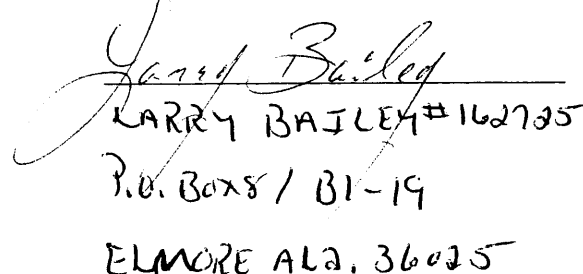 Larry Bailey
LARRY BAILEY #162725
P.O. Box 8 / B1-19
ELMORE ALA. 36025